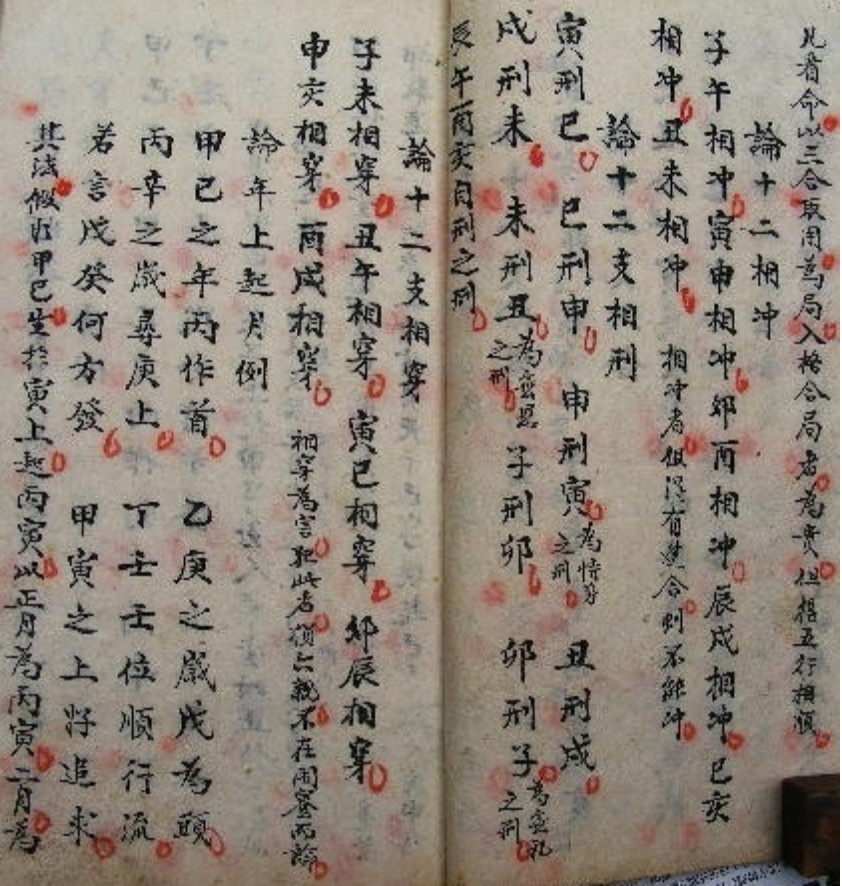 凡看命以三合取用為局入格合局者為貴但得五行相順
論十二相冲
子午相冲寅申相冲卯酉相冲辰戌相冲巳亥
相冲丑未相冲 相冲者但得有合則不能冲
論十二支相刑
寅刑巳 巳刑申 申刑寅為恃勢之刑 丑刑戌
戌刑未 未刑丑為無恩之刑 子刑卯 卯刑子為無礼之刑
辰午酉亥自刑之刑
論十二支相穿
子未相穿丑午相穿寅巳相穿卯辰相穿
申亥相穿酉戌相穿 相穿為害犯此者損六親不在開書而論
論年上起月例
甲己之年丙作首 乙庚之歲戊為頭
丙辛之歲尋庚上 丁壬壬位順行流
若言戊癸何方發 甲寅之上好追求
其法假如甲己生於寅上起丙寅以正月為丙寅二月為